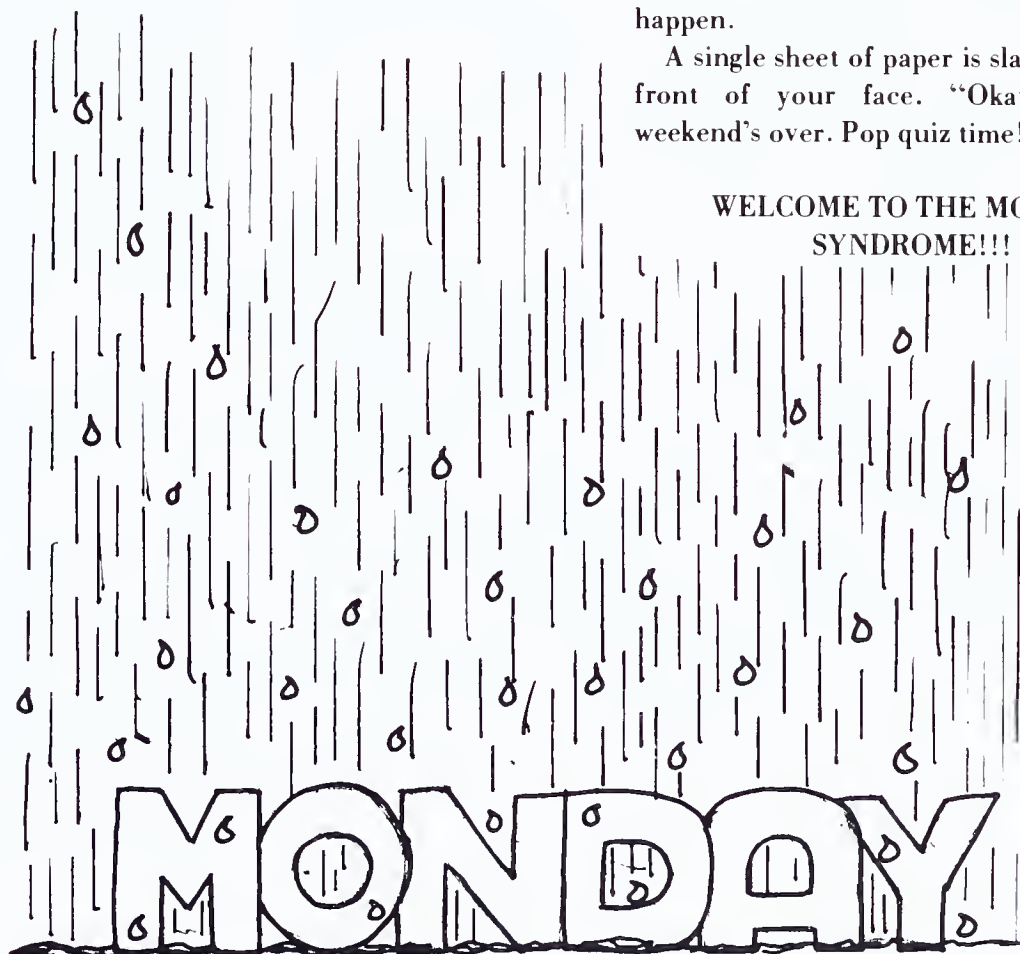 happen.
A single sheet of paper is sla
front of your face. “Oka
weekend's over. Pop quiz time!
WELCOME TO THE MO
SYNDROME!!!
MONDAY